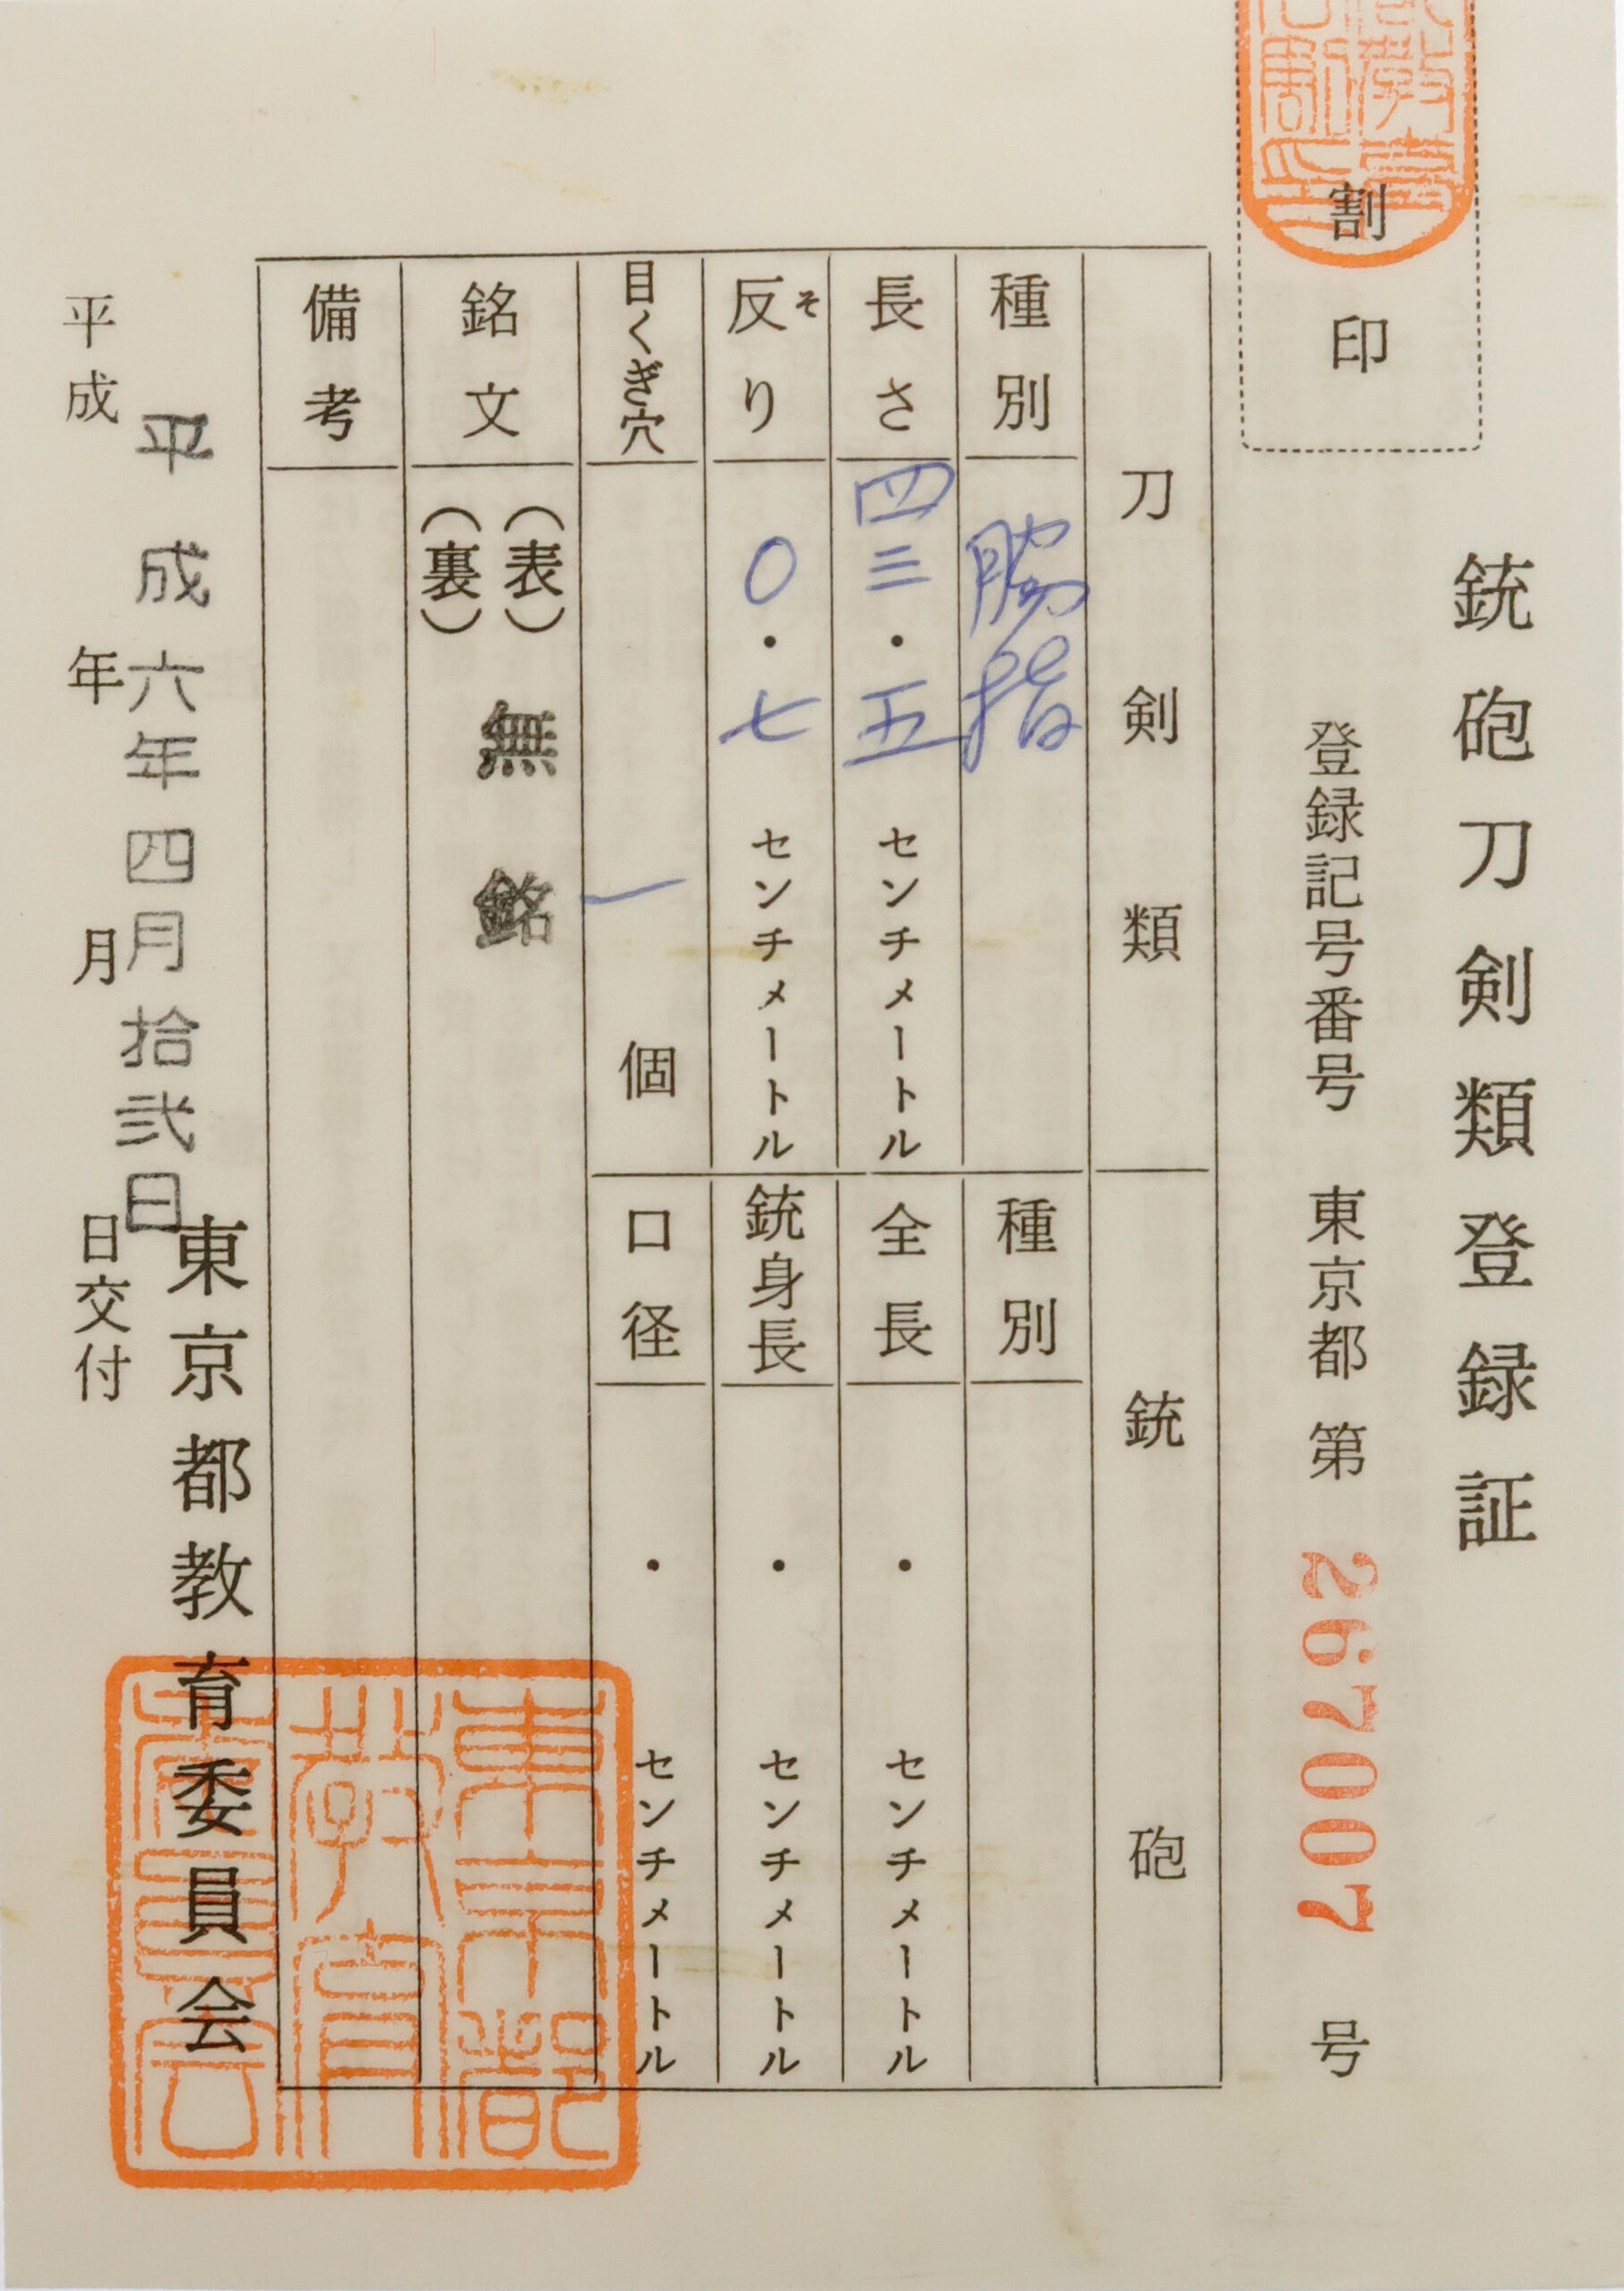 銃砲刀剣類登録証
割印
登録記号番号 東京都 第 267007 号
刀剣類
種別 脇指
長さ 四三・五 センチメートル
反り そ 〇・七 センチメートル
目くぎ穴 一 個
銃砲
種別
全長 ・ センチメートル
銃身長 ・ センチメートル
口径 ・ センチメートル
銘文 (表) (裏) 無銘
備考
平成六年四月拾弐日
平成 年 月 日交付
東京都教育委員会
東京都
教育
委員会